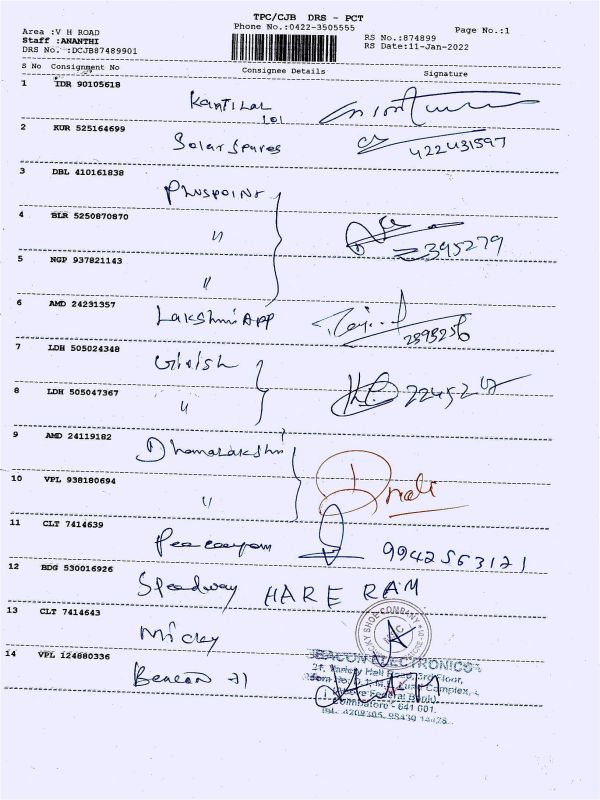 TPC/CJB DRS - PCT
Phone No.:0422-3505555
Page No.:1
Area :V H ROAD
Staff :ANANTHI
DRS No. :DCJB87489901
RS No.:874899
RS Date:11-Jan-2022
S No Consignment No Consignee Details Signature
1 IDR 90105618
Kantilal
101
2 KUR 525164699
Solar Spares
422431597
3 DBL 410161838
Pluspoint
4 BLR 5250870870
"
395279
5 NGP 937821143
"
6 AMD 24231357
Lakshmi APP
2393256
7 LDH 505024348
Girish
8 LDH 505047367
"
9 AMD 24119182
Dhanalakshmi
10 VPL 938180694
"
11 CLT 7414639
9942563121
12 BDG 530016926
Speedway HARE RAM
13 CLT 7414643
Micky
14 VPL 124880336
Beacon 71
BEACON ELECTRONICS
21, Variety Hall Road, 3rd Floor,
Complex,
Federal Bank)
Coimbatore - 641 001.